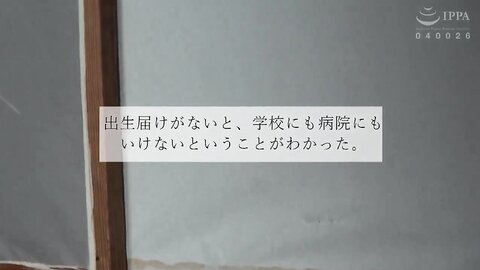 IPPA
040026
出生届けがないと、学校にも病院にも
いけないということがわかった。